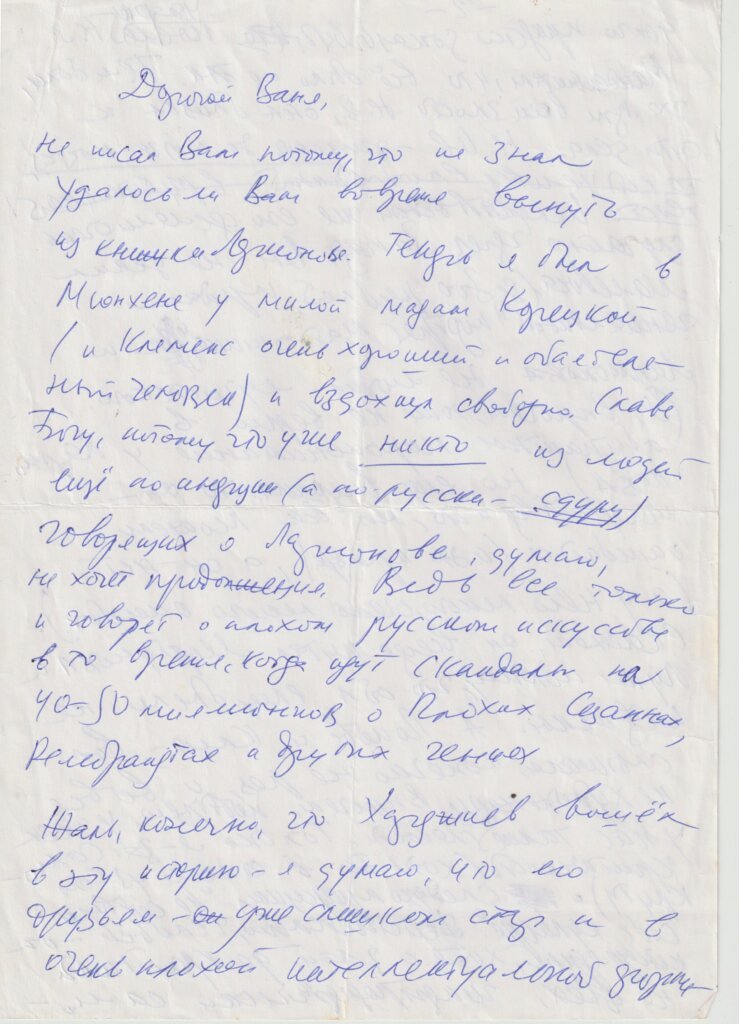 Дорогой Ваня,
не писал Вам потому, что не знал
удалось ли Вам вовремя вынуть
из книжки Ладжонове. Теперь я был в
Мюнхене у милой мадам Корецкой
(и Клеменс очень хороший и обаятель-
ный человек) и вздохнул свободно. Слава
Богу, потому что уже никто из людей
ещё по инерции (а по-русски – сдуру)
говорящих о, думаю,
не хочет продолжения. Ведь все только
и говорят о плохом русском искусстве
в то время, когда идут скандалы на
40-50 миллионов о плохих Сезаннах,
Рембрандтах и других гениях
Жаль, конечно, что Харджиев вошёл
в эту историю – я думаю, что его
друзьям – он уже слишком стар и в
очень плохой интеллектуальной форме